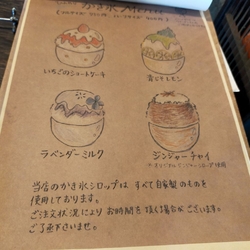 かき氷
いちごのショートケーキ
青じそレモン
ラベンダーミルク
ジンジャーチャイ
当店のかき氷シロップは すべて自家製のものを
使用しております。
ご注文状況により お時間を頂く場合がございます。
ご了承下さいませ。